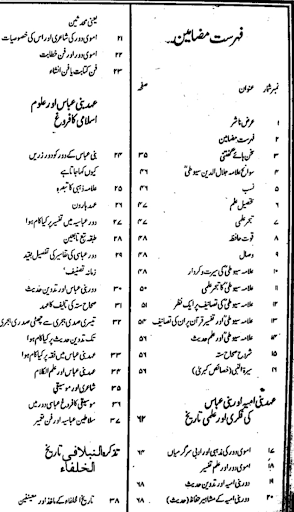 فہرست مضامین
نمبر شمار عنوان صفحہ
۱ عرض ناشر
۲ فہرست مضامین
۳ سخن ہائے گفتنی ۳۵
۴ سوانح علامہ جلال الدین سیوطیؒ ۴۶
۵ نسب ۴۶
۶ تحصیل علم ۴۷
۷ تبحر علمی ۴۷
۸ قوت حافظہ ۴۸
۹ وصال ۴۸
۱۰ علامہ سیوطیؒ کی سیرت و کردار ۴۸
۱۱ علامہ سیوطیؒ کا علمی کارنامہ ۵۰
۱۲ علامہ سیوطیؒ کی تصانیف پر ایک نظر ۵۱
۱۳ علامہ سیوطیؒ اور تفسیر قرآن پر ان کی تصانیف ۵۳
۱۴ علامہ سیوطیؒ اور علم حدیث ۵۴
۱۵ شروح صحاح ستہ ۵۶
۱۶ سیرۃ النبی (خصائص کبریٰ) ۵۶
عہد بنی امیہ اور بنی عباس
کی فکری اور علمی تاریخ ۶۲
۱۷ اموی دور کی مذہبی اور ادبی سرگرمیاں ۶۴
۱۸ اموی دور اور علم تفسیر
۱۹ بنی امیہ اور تدوین حدیث ۶۸
۲۰ بنی امیہ کے مشاہیر حفاظ (حدیث) ۶۸
یعنی محدثین
۲۱ اموی دور کی شاعری اور اس کی خصوصیات
۲۲ اموی دور اور فن خطابت
۲۳ فن کتابت یا فن انشاء
عہد بنی عباس اور علوم
اسلامی کا فروغ
۲۴ بنی عباس کے دور کو دور زریں
کیوں کہا جاتا ہے
۲۵ علامہ ذہبی کا تبصرہ
۲۶ عہد ہارون
۲۷ دور عباسیہ میں تفسیر پر کیا کام ہوا
۲۸ طبقہ تبع تابعین
۲۹ دور عباسی کی تفاسیر کی تفصیل بقید
زمانہ تصنیف
۳۰ دور بنی عباس اور تدوین حدیث
۳۱ صحاح ستہ کی تالیف کا عہد
۳۲ تیسری صدی ہجری سے چھٹی صدی ہجری
تک تدوین حدیث پر کیا کام ہوا
۳۳ عہد بنی عباس میں فقہ پر کیا کام ہوا
۳۴ عہد بنی عباس اور علم الکلام
۳۵ شاعری اور موسیقی
۳۶ موسیقی کا فروغ عباسی دور میں
۳۷ سلاطین عباسیہ اور فن تعمیر
تذکرہ النبلا فی تاریخ
الخلفاء
۳۸ تاریخ الخلفاء کے ماخذ اور مصنفین